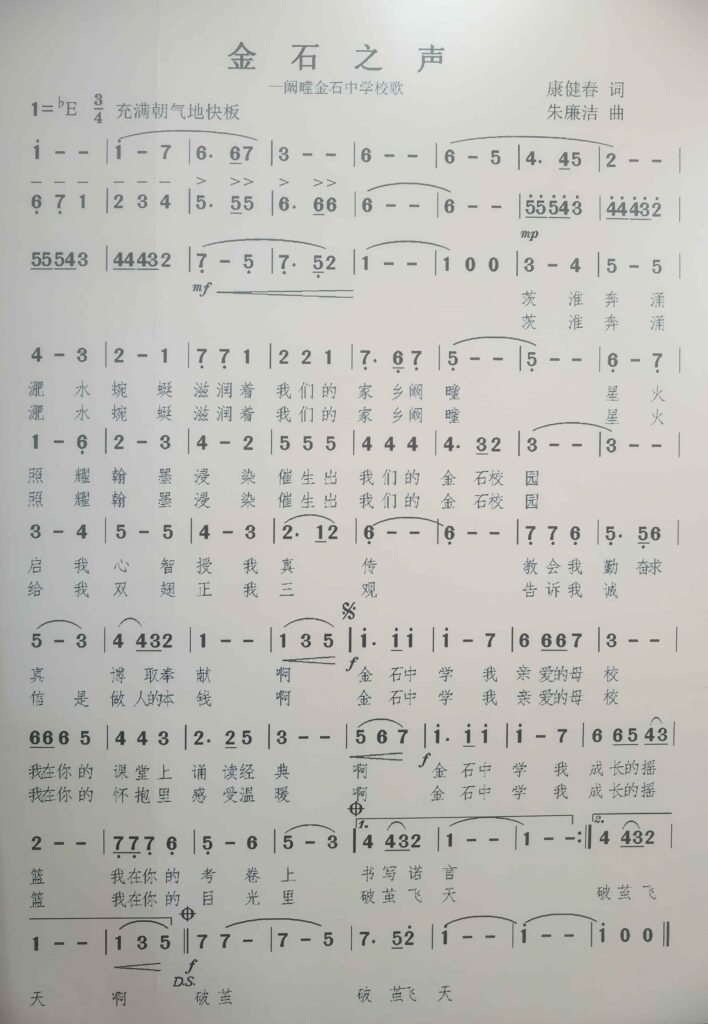 金石之声
—阚疃金石中学校歌
康健春 词
1=♭E 3/4 充满朝气地快板
朱廉洁 曲
i - - | i - 7 | 6. 67 | 3 - - | 6 - - | 6 - 5 | 4. 45 | 2 - - |
6 7 1 | 2 3 4 | 5. 55 | 6. 66 | 6 - - | 6 - - | 55543 | 44432 |
mp
55543 | 44432 | 7 - 5 | 7. 52 | 1 - - | 1 0 0 | 3 - 4 | 5 - 5 |
mf
茨 淮 奔 涌
茨 淮 奔 涌
4 - 3 | 2 - 1 | 7 7 1 | 2 2 1 | 7. 67 | 5 - - | 5 - - | 6 - 7 |
淝 水 蜿 蜒 滋润着 我们的 家 乡阚 疃 星 火
淝 水 蜿 蜒 滋润着 我们的 家 乡阚 疃 星 火
1 - 6 | 2 - 3 | 4 - 2 | 5 5 5 | 4 4 4 | 4. 32 | 3 - - | 3 - - |
照 耀 翰 墨 浸 染 催生出 我们的 金 石校 园
照 耀 翰 墨 浸 染 催生出 我们的 金 石校 园
3 - 4 | 5 - 5 | 4 - 3 | 2. 12 | 6 - - | 6 - - | 7 7 6 | 5. 56 |
启 我 心 智 授 我 真 传 教会我 勤 奋求
给 我 双 翅 正 我 三 观 告诉我 诚
5 - 3 | 4 432 | 1 - - | 1 3 5 | i. i i | i - 7 | 6 667 | 3 - - |
f
真 博 取奉 献 啊 金 石中 学 我 亲 爱的母 校
信 是 做 人的本 钱 啊 金 石中 学 我 亲 爱的母 校
66 6 5 | 4 4 3 | 2. 2 5 | 3 - - | 5 6 7 | i. i i | i - 7 | 6 65 43 |
f
我在你的 课堂上 诵 读经 典 啊 金 石中 学 我 成 长的摇
我在你的 怀抱里 感 受温 暖 啊 金 石中 学 我 成 长的摇
1. 2.
2 - - | 777 6 | 5 - 6 | 5 - 3 | 4 432 | 1 - - | 1 - - :|| 4 432 |
篮 我在你的 考 卷 上 书 写 诺 言
篮 我在你的 目 光 里 破 茧 飞 天 破 茧 飞
1 - - | 1 3 5 || 7 7 - | 7 - 5 | 7. 52 | i - - | i - - | i 0 0 ||
D.S. f
天 啊 破 茧 破 茧飞 天